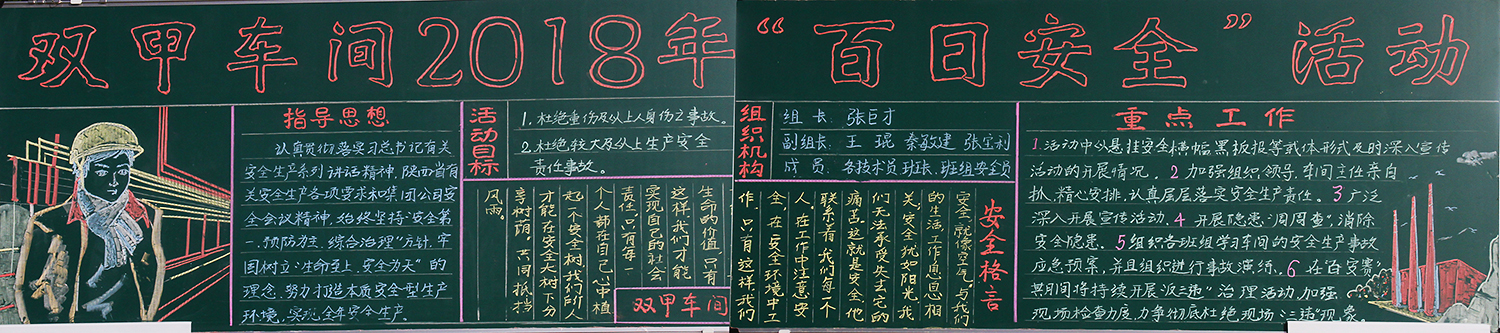 双甲车间2018年“百日安全”活动
指导思想
认真贯彻落实习总书记有关
安全生产系列讲话精神,陕西省有
关安全生产各项要求和集团公司安
全会议精神,始终坚持“安全第
一、预防为主、综合治理”方针,牢
固树立“生命至上,安全为天”的
理念,努力打造本质安全型生产
环境,实现全年安全生产。
活动目标
1.杜绝重伤及以上人身伤亡事故。
2.杜绝较大及以上生产安全
责任事故。
生命的价值,只有
这样,我们才能
实现自己的社会
责任,只有每一
个人都在自己心中植
起一个安全树,我们所人
才能在安全大树下分
享树荫,共同抵挡
风雨
双甲车间
组织机构
组 长:张巨才
副组长:王 琨 秦敏建 张宝利
成 员:各技术员 班长、班组安全员
安全格言
安全就像空气,与我们
的生活、工作息息相
关,安全犹如阳光,我
们无法承受失去它的
痛苦,这就是安全,他
联系着我们每一个
人,在工作中注意安
全,在安全环境中工
作,只有这样,我们
重点工作
1.活动中以悬挂安全横幅黑板报等载体形式及时深入宣传
活动的开展情况。2加强组织领导,车间主任亲自
抓,精心安排,认真层层落实安全生产责任。3广泛
深入开展宣传活动,4开展隐患“周周查”,消除
安全隐患。5组织各班组学习车间的安全生产事故
应急预案,并且组织进行事故演练。6在“百安赛”
期间将持续开展“反三违”治理活动,加强
现场检查力度,力争彻底杜绝现场“三违”现象。